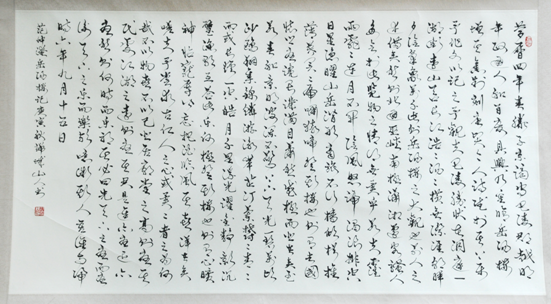 慶曆四年春滕子京謫守巴陵郡越明
年政通人和百廢具興乃重修岳陽樓
增其舊制刻唐賢今人詩賦於其上屬
予作文以記之予觀夫巴陵勝狀在洞庭一
湖銜遠山吞長江浩浩湯湯橫無際涯朝暉
夕陰氣象萬千此則岳陽樓之大觀也前人之
述備矣然則北通巫峽南極瀟湘遷客騷人
多會於此覽物之情得無異乎若夫霪
雨霏霏連月不開陰風怒號濁浪排空
日星隱曜山岳潛形商旅不行檣傾楫摧
薄暮冥冥虎嘯猿啼登斯樓也則有去國
懷鄉憂讒畏譏滿目蕭然感極而悲者矣至
若春和景明波瀾不驚上下天光一碧萬頃
沙鷗翔集錦鱗游泳岸芷汀蘭郁郁青青
而或長煙一空皓月千里浮光躍金靜影沉
璧漁歌互答此樂何極登斯樓也則有心曠
神怡寵辱偕忘把酒臨風其喜洋洋者矣
嗟夫予嘗求古仁人之心或異二者之為何
哉不以物喜不以己悲居廟堂之高則憂其
民處江湖之遠則憂其君是進亦憂退亦
憂然則何時而樂耶其必曰先天下之憂而憂
後天下之樂而樂歟噫微斯人吾誰與歸
時六年九月十五日
范仲淹岳陽樓記